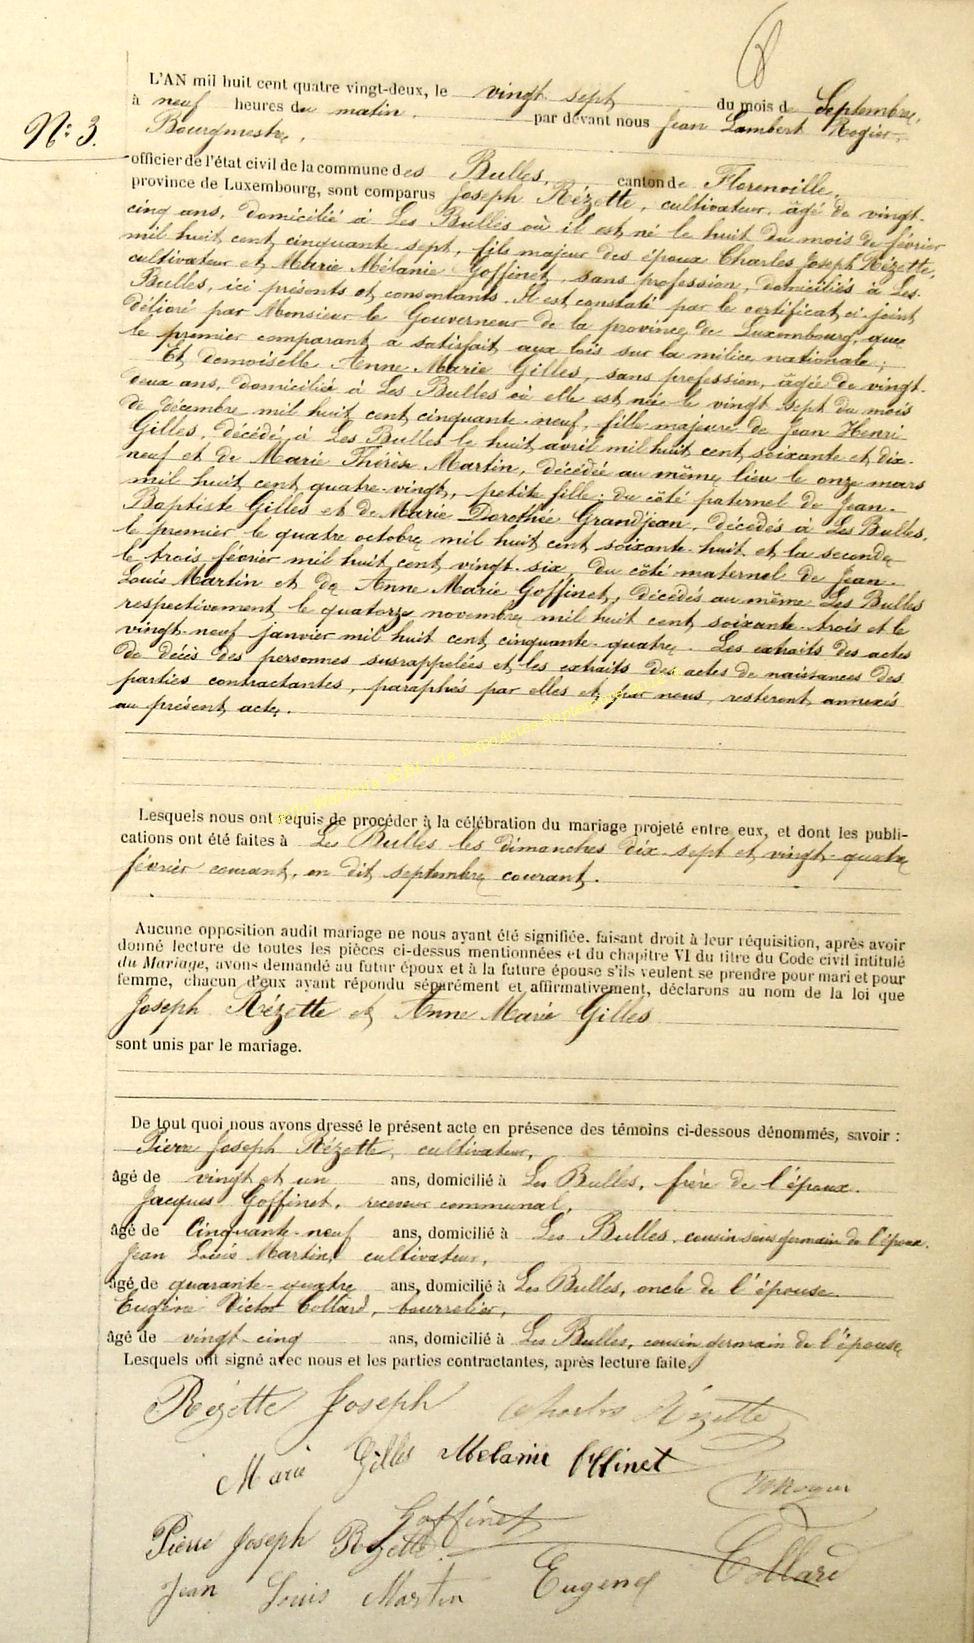 L'AN mil huit cent quatre vingt-deux, le vingt sept du mois de Septembre,
à neuf heures du matin. par devant nous Jean Lambert Rogier,
Bourgmestre,
N° 3.
officier de l'état civil de la commune des Bulles, canton de Florenville,
province de Luxembourg, sont comparus Joseph Rézette, cultivateur, âgé de vingt-
cinq ans, domicilié à Les Bulles où il est né le huit du mois de février
mil huit cent cinquante-sept, fils majeur des époux Charles Joseph Rézette,
cultivateur et Marie Mélanie Goffinet, sans profession, domiciliés à Les-
Bulles, ici présents et consentants. Il est constaté par le certificat ci-joint
délivré par Monsieur le Gouverneur de la province de Luxembourg, que
le premier comparant a satisfait aux lois sur la milice nationale;
Et demoiselle Anne Marie Gilles, sans profession, âgée de vingt-
deux ans, domiciliée à Les Bulles où elle est née le vingt sept du mois
de décembre mil huit cent cinquante-neuf, fille majeure de Jean Henri
Gilles, décédé à Les Bulles le huit avril mil huit cent soixante et dix-
neuf et de Marie Thérèse Martin, décédée au même lieu le onze mars
mil huit cent quatre-vingt, petite fille: du côté paternel de Jean-
Baptiste Gilles et de Marie Dorothée Grandjean, décédés à Les Bulles,
le premier le quatre octobre mil huit cent soixante-huit et la seconde
le trois février mil huit cent vingt-six, du côté maternel de Jean-
Louis Martin et de Anne Marie Goffinet, décédés au même Les Bulles
respectivement le quatorze novembre mil huit cent soixante-trois et le
vingt-neuf janvier mil huit cent cinquante-quatre. Les extraits des actes
de décès des personnes susrappelées et les extraits des actes de naissances des
parties contractantes, paraphés par elles et par nous, resteront annexés
au présent acte.
Lesquels nous ont requis de procéder à la célébration du mariage projeté entre eux, et dont les publi-
cations ont été faites à Les Bulles les dimanches dix-sept et vingt-quatre
février courant, on dit septembre courant.
Aucune opposition audit mariage ne nous ayant été signifiée, faisant droit à leur réquisition, après avoir
donné lecture de toutes les pièces ci-dessus mentionnées et du chapitre VI du titre du Code civil intitulé
du Mariage, avons demandé au futur époux et à la future épouse s'ils veulent se prendre pour mari et pour
femme, chacun d'eux ayant répondu séparément et affirmativement, déclarons au nom de la loi que
Joseph Rézette et Anne Marie Gilles
sont unis par le mariage.
De tout quoi nous avons dressé le présent acte en présence des témoins ci-dessous dénommés, savoir :
Pierre Joseph Rézette, cultivateur,
âgé de vingt et un ans, domicilié à Les Bulles, frère de l'époux.
Jacques Goffinet, receveur communal,
âgé de Cinquante-neuf ans, domicilié à Les Bulles, cousin sous germain de l'époux.
Jean Louis Martin, cultivateur,
âgé de quarante-quatre ans, domicilié à Les Bulles, oncle de l'épouse
Eugène Victor Collard, bourrelier,
âgé de vingt-cinq ans, domicilié à Les Bulles, cousin germain de l'épouse
Lesquels ont signé avec nous et les parties contractantes, après lecture faite.
Rézette Joseph Charles Rézette
Marie Gilles Melanie Goffinet
Goffinet
Pierre Joseph Rezette
Jean Louis Martin Eugene Collard